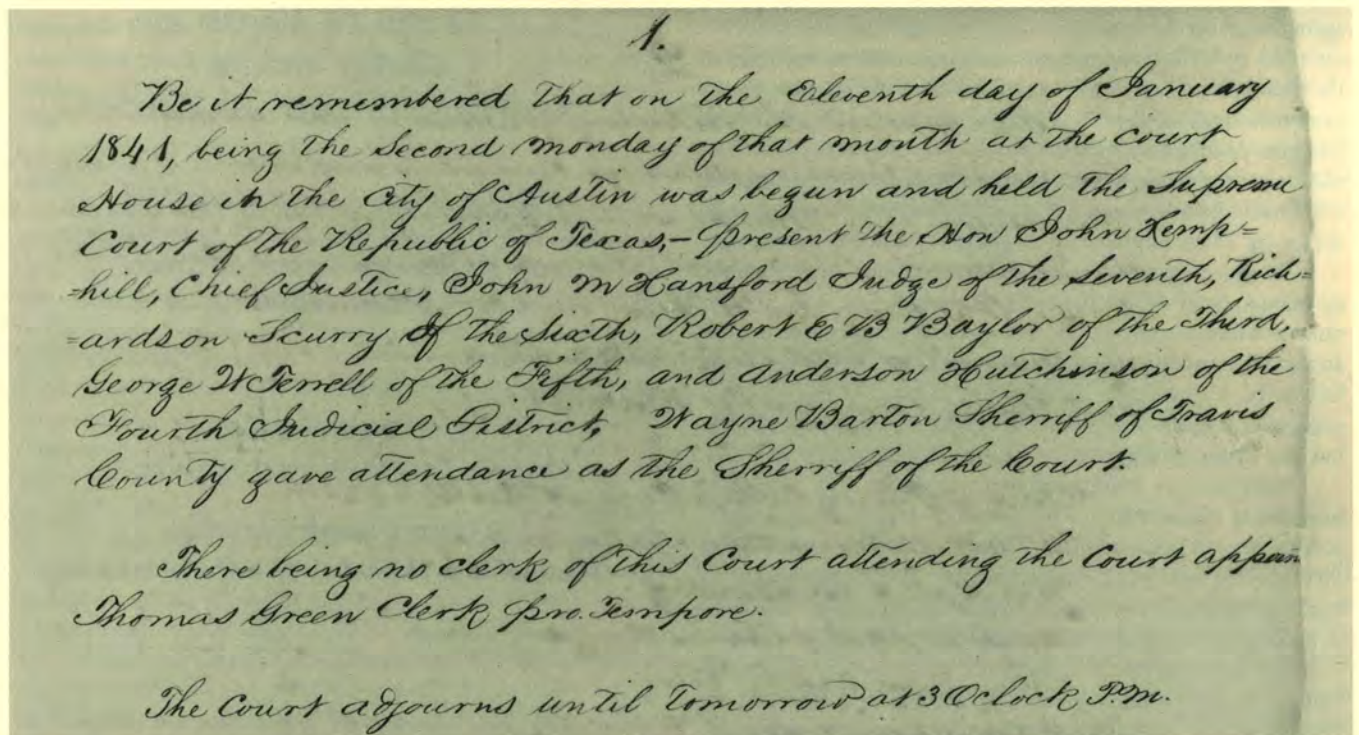 1.
Be it remembered that on the Eleventh day of January
1841, being the Second Monday of that month at the Court
House in the City of Austin was begun and held the Supreme
Court of the Republic of Texas,- present the Hon John Hemp=
=hill, Chief Justice, John M Hansford Judge of the Seventh, Rich=
=ardson Scurry of the Sixth, Robert E B Baylor of the Third,
George W Terrell of the Fifth, and Anderson Hutchinson of the
Fourth Judicial District, Wayne Barton Sherriff of Travis
County gave attendance as the Sherriff of the Court.
There being no clerk of this Court attending the Court appoin
Thomas Green Clerk pro. Tempore.
The Court adjourns until Tomorrow at 3 Oclock P.M.